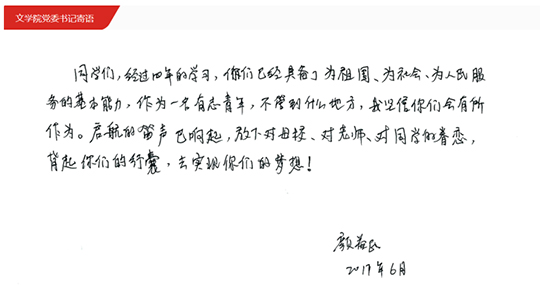 文学院党委书记寄语
同学们，经过四年的学习，你们已经具备了为祖国、为社会、为人民服
务的基本能力，作为一名有志青年，不管到什么地方，我坚信你们会有所
作为。启航的笛声已响起，放下对母校、对老师、对同学的眷恋，
背起你们的行囊，去实现你们的梦想！
2017年6月